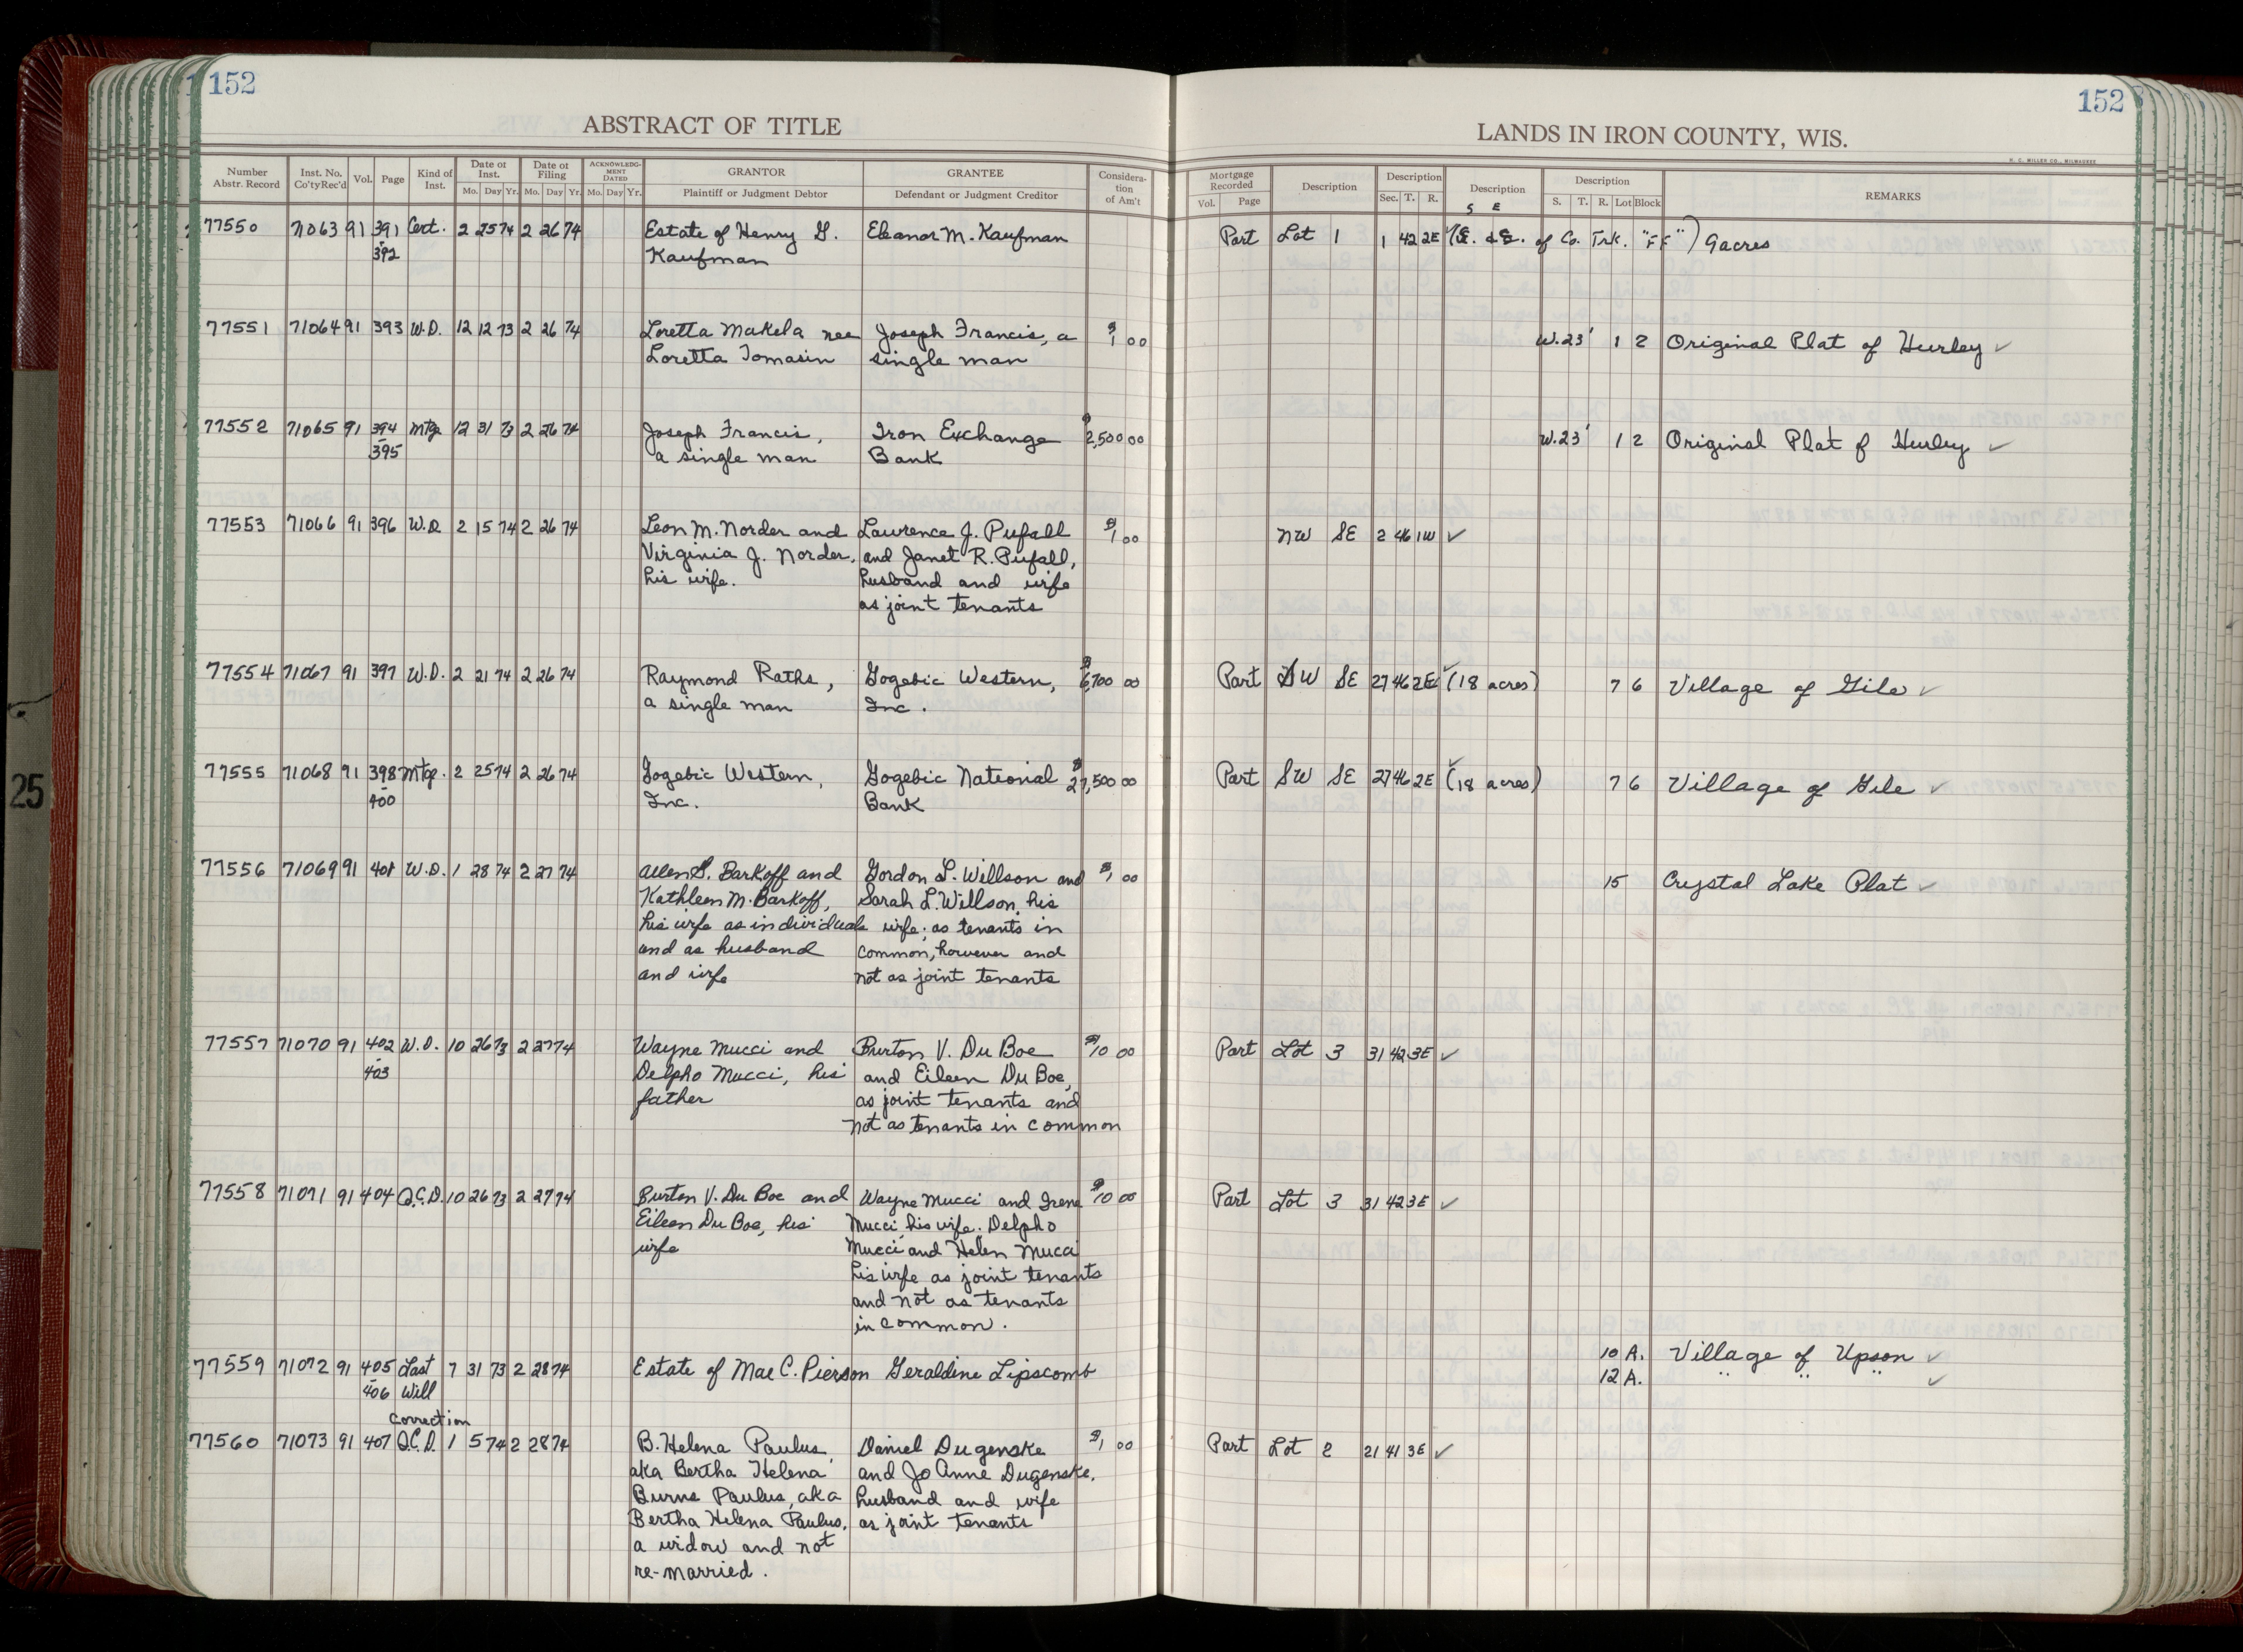 152
152
ABSTRACT OF TITLE
LANDS IN IRON COUNTY, WIS.
H. C. MILLER CO., MILWAUKEE
Number Abstr. Record Inst. No. Co'tyRec'd Vol. Page Kind of Inst. Date of Inst. Mo. Day Yr. Date of Filing Mo. Day Yr. ACKNOWLEDGMENT DATED Mo. Day Yr. GRANTOR Plaintiff or Judgment Debtor GRANTEE Defendant or Judgment Creditor Consideration of Am't
Mortgage Recorded Vol. Page Description Description Sec. T. R. Description Description S. T. R. Lot Block REMARKS
S E
77550 71063 91 391 Cert. 2 25 74 2 26 74 Estate of Henry G. Eleanor M. Kaufman Part Lot 1 1 42 2E (S. & E. of Co. Trk. "FF") 9 acres
-392 Kaufman
77551 71064 91 393 W.D. 12 12 73 2 26 74 Loretta Makela nee Joseph Francis, a $1 00 W.23' 1 2 Original Plat of Hurley ✓
Loretta Tomasin single man
77552 71065 91 394 Mtg. 12 31 73 2 26 74 Joseph Francis, Iron Exchange $2,500 00 W.23' 1 2 Original Plat of Hurley ✓
-395 a single man Bank
77553 71066 91 396 W.D. 2 15 74 2 26 74 Leon M. Norder and Lawrence J. Pufall $1 00 NW SE 2 46 1W ✓
Virginia J. Norder, and Janet R. Pufall,
his wife. husband and wife
as joint tenants
77554 71067 91 397 W.D. 2 21 74 2 26 74 Raymond Raths, Gogebic Western, $6,700 00 Part SW SE 27 46 2E ✓ (18 acres) 7 6 Village of Gile ✓
a single man Inc.
77555 71068 91 398 Mtg. 2 25 74 2 26 74 Gogebic Western, Gogebic National $27,500 00 Part SW SE 27 46 2E ✓ (18 acres) 7 6 Village of Gile ✓
-400 Inc. Bank
77556 71069 91 401 W.D. 1 28 74 2 27 74 Allen S. Barkoff and Gordon L. Willson and $1 00 15 Crystal Lake Plat ✓
Kathleen M. Barkoff, Sarah L. Willson, his
his wife as individuals wife; as tenants in
and as husband common, however and
and wife not as joint tenants
77557 71070 91 402 W.D. 10 26 73 2 27 74 Wayne Mucci and Burton V. Du Boe $10 00 Part Lot 3 31 42 3E ✓
-403 Delpho Mucci, his and Eileen Du Boe,
father as joint tenants and
not as tenants in common
77558 71071 91 404 Q.C.D. 10 26 73 2 27 74 Burton V. Du Boe and Wayne Mucci and Irene $10 00 Part Lot 3 31 42 3E ✓
Eileen Du Boe, his Mucci, his wife, Delpho
wife Mucci and Helen Mucci
his wife as joint tenants
and not as tenants
in common.
77559 71072 91 405 Last 7 31 73 2 28 74 Estate of Mae C. Pierson Geraldine Lipscomb 10 A. Village of Upson ✓
-406 Will 12 A. " " " ✓
Correction
77560 71073 91 407 Q.C.D. 1 5 74 2 28 74 B. Helena Paulus, Daniel Dugenske $1 00 Part Lot 2 21 41 3E ✓
aka Bertha Helena and Jo Anne Dugenske,
Burns Paulus, aka husband and wife
Bertha Helena Paulus, as joint tenants
a widow and not
re-married.
25